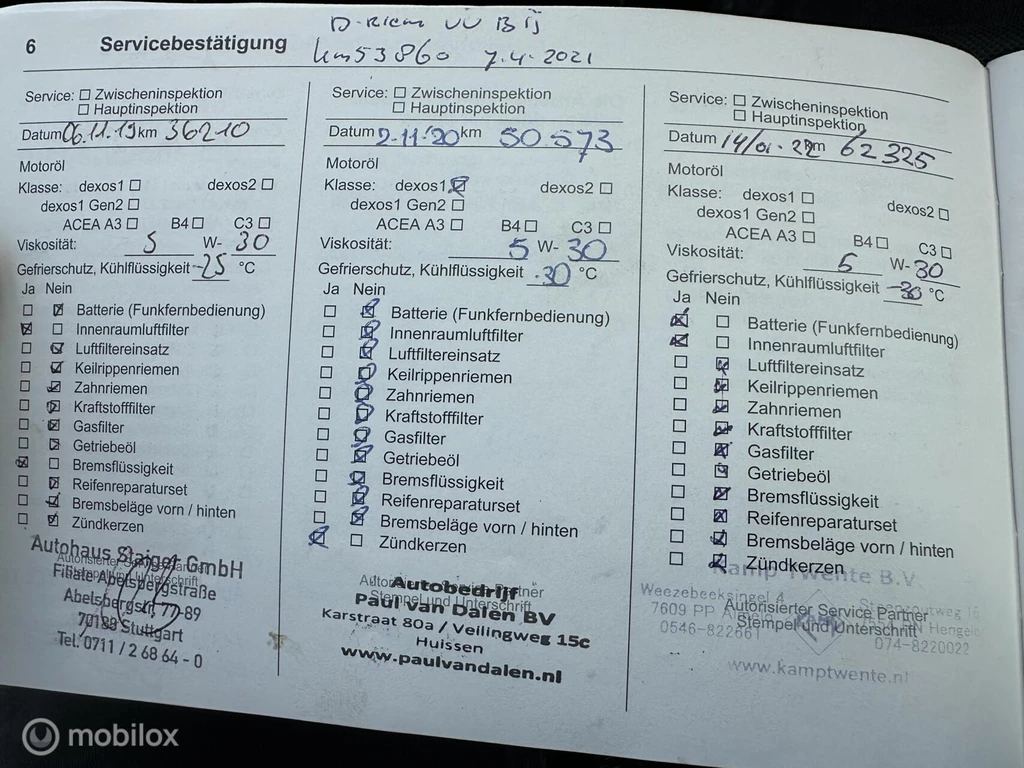 D-Riem VV Bij
km 53860 7.4.2021
6 Servicebestätigung
Service: ☐ Zwischeninspektion
☐ Hauptinspektion
Datum 06.11.19 km 36210
Motoröl
Klasse: dexos1 ☐ dexos2 ☐
dexos1 Gen2 ☐
ACEA A3 ☐ B4 ☐ C3 ☐
Viskosität: 5 W- 30
Gefrierschutz, Kühlflüssigkeit -25 °C
Ja Nein
☐ ☒ Batterie (Funkfernbedienung)
☒ ☐ Innenraumluftfilter
☐ ☒ Luftfiltereinsatz
☐ ☒ Keilrippenriemen
☐ ☒ Zahnriemen
☐ ☒ Kraftstofffilter
☐ ☒ Gasfilter
☐ ☒ Getriebeöl
☒ ☐ Bremsflüssigkeit
☐ ☒ Reifenreparaturset
☐ ☒ Bremsbeläge vorn / hinten
☐ ☒ Zündkerzen
Autohaus Staiger GmbH
Autorisierter Service Partner
Filiale Abelsbergstraße
Stempel und Unterschrift
Abelsbergstr. 77-89
70188 Stuttgart
Tel. 0711 / 2 68 64 - 0
Service: ☐ Zwischeninspektion
☐ Hauptinspektion
Datum 2-11-'20 km 50573
Motoröl
Klasse: dexos1 ☒ dexos2 ☐
dexos1 Gen2 ☐
ACEA A3 ☐ B4 ☐ C3 ☐
Viskosität: 5 W- 30
Gefrierschutz, Kühlflüssigkeit -30 °C
Ja Nein
☐ ☒ Batterie (Funkfernbedienung)
☐ ☒ Innenraumluftfilter
☐ ☒ Luftfiltereinsatz
☐ ☒ Keilrippenriemen
☐ ☒ Zahnriemen
☐ ☒ Kraftstofffilter
☐ ☒ Gasfilter
☐ ☒ Getriebeöl
☐ ☒ Bremsflüssigkeit
☐ ☒ Reifenreparaturset
☐ ☒ Bremsbeläge vorn / hinten
☒ ☐ Zündkerzen
Autorisierter Service Partner
Autobedrijf
Stempel und Unterschrift
Paul van Dalen BV
Karstraat 80a / Veilingweg 15c
Huissen
www.paulvandalen.nl
Service: ☐ Zwischeninspektion
☐ Hauptinspektion
Datum 14/01-22 km 62325
Motoröl
Klasse: dexos1 ☐ dexos2 ☐
dexos1 Gen2 ☐
ACEA A3 ☐ B4 ☐ C3 ☐
Viskosität: 5 W- 30
Gefrierschutz, Kühlflüssigkeit -30 °C
Ja Nein
☒ ☐ Batterie (Funkfernbedienung)
☒ ☐ Innenraumluftfilter
☐ ☒ Luftfiltereinsatz
☐ ☒ Keilrippenriemen
☐ ☒ Zahnriemen
☐ ☒ Kraftstofffilter
☐ ☒ Gasfilter
☐ ☒ Getriebeöl
☐ ☒ Bremsflüssigkeit
☐ ☒ Reifenreparaturset
☐ ☒ Bremsbeläge vorn / hinten
☐ ☒ Zündkerzen
Kamp Twente B.V.
Weezebeeksingel 4
Autorisierter Service Partner
7609 PP Hengelo
Stempel und Unterschrift
0546-822661 074-8220022
www.kamptwente.nl
mobilox